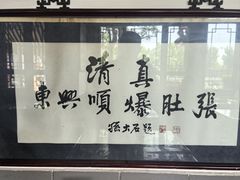 清真
東興順爆肚張
孫大石題